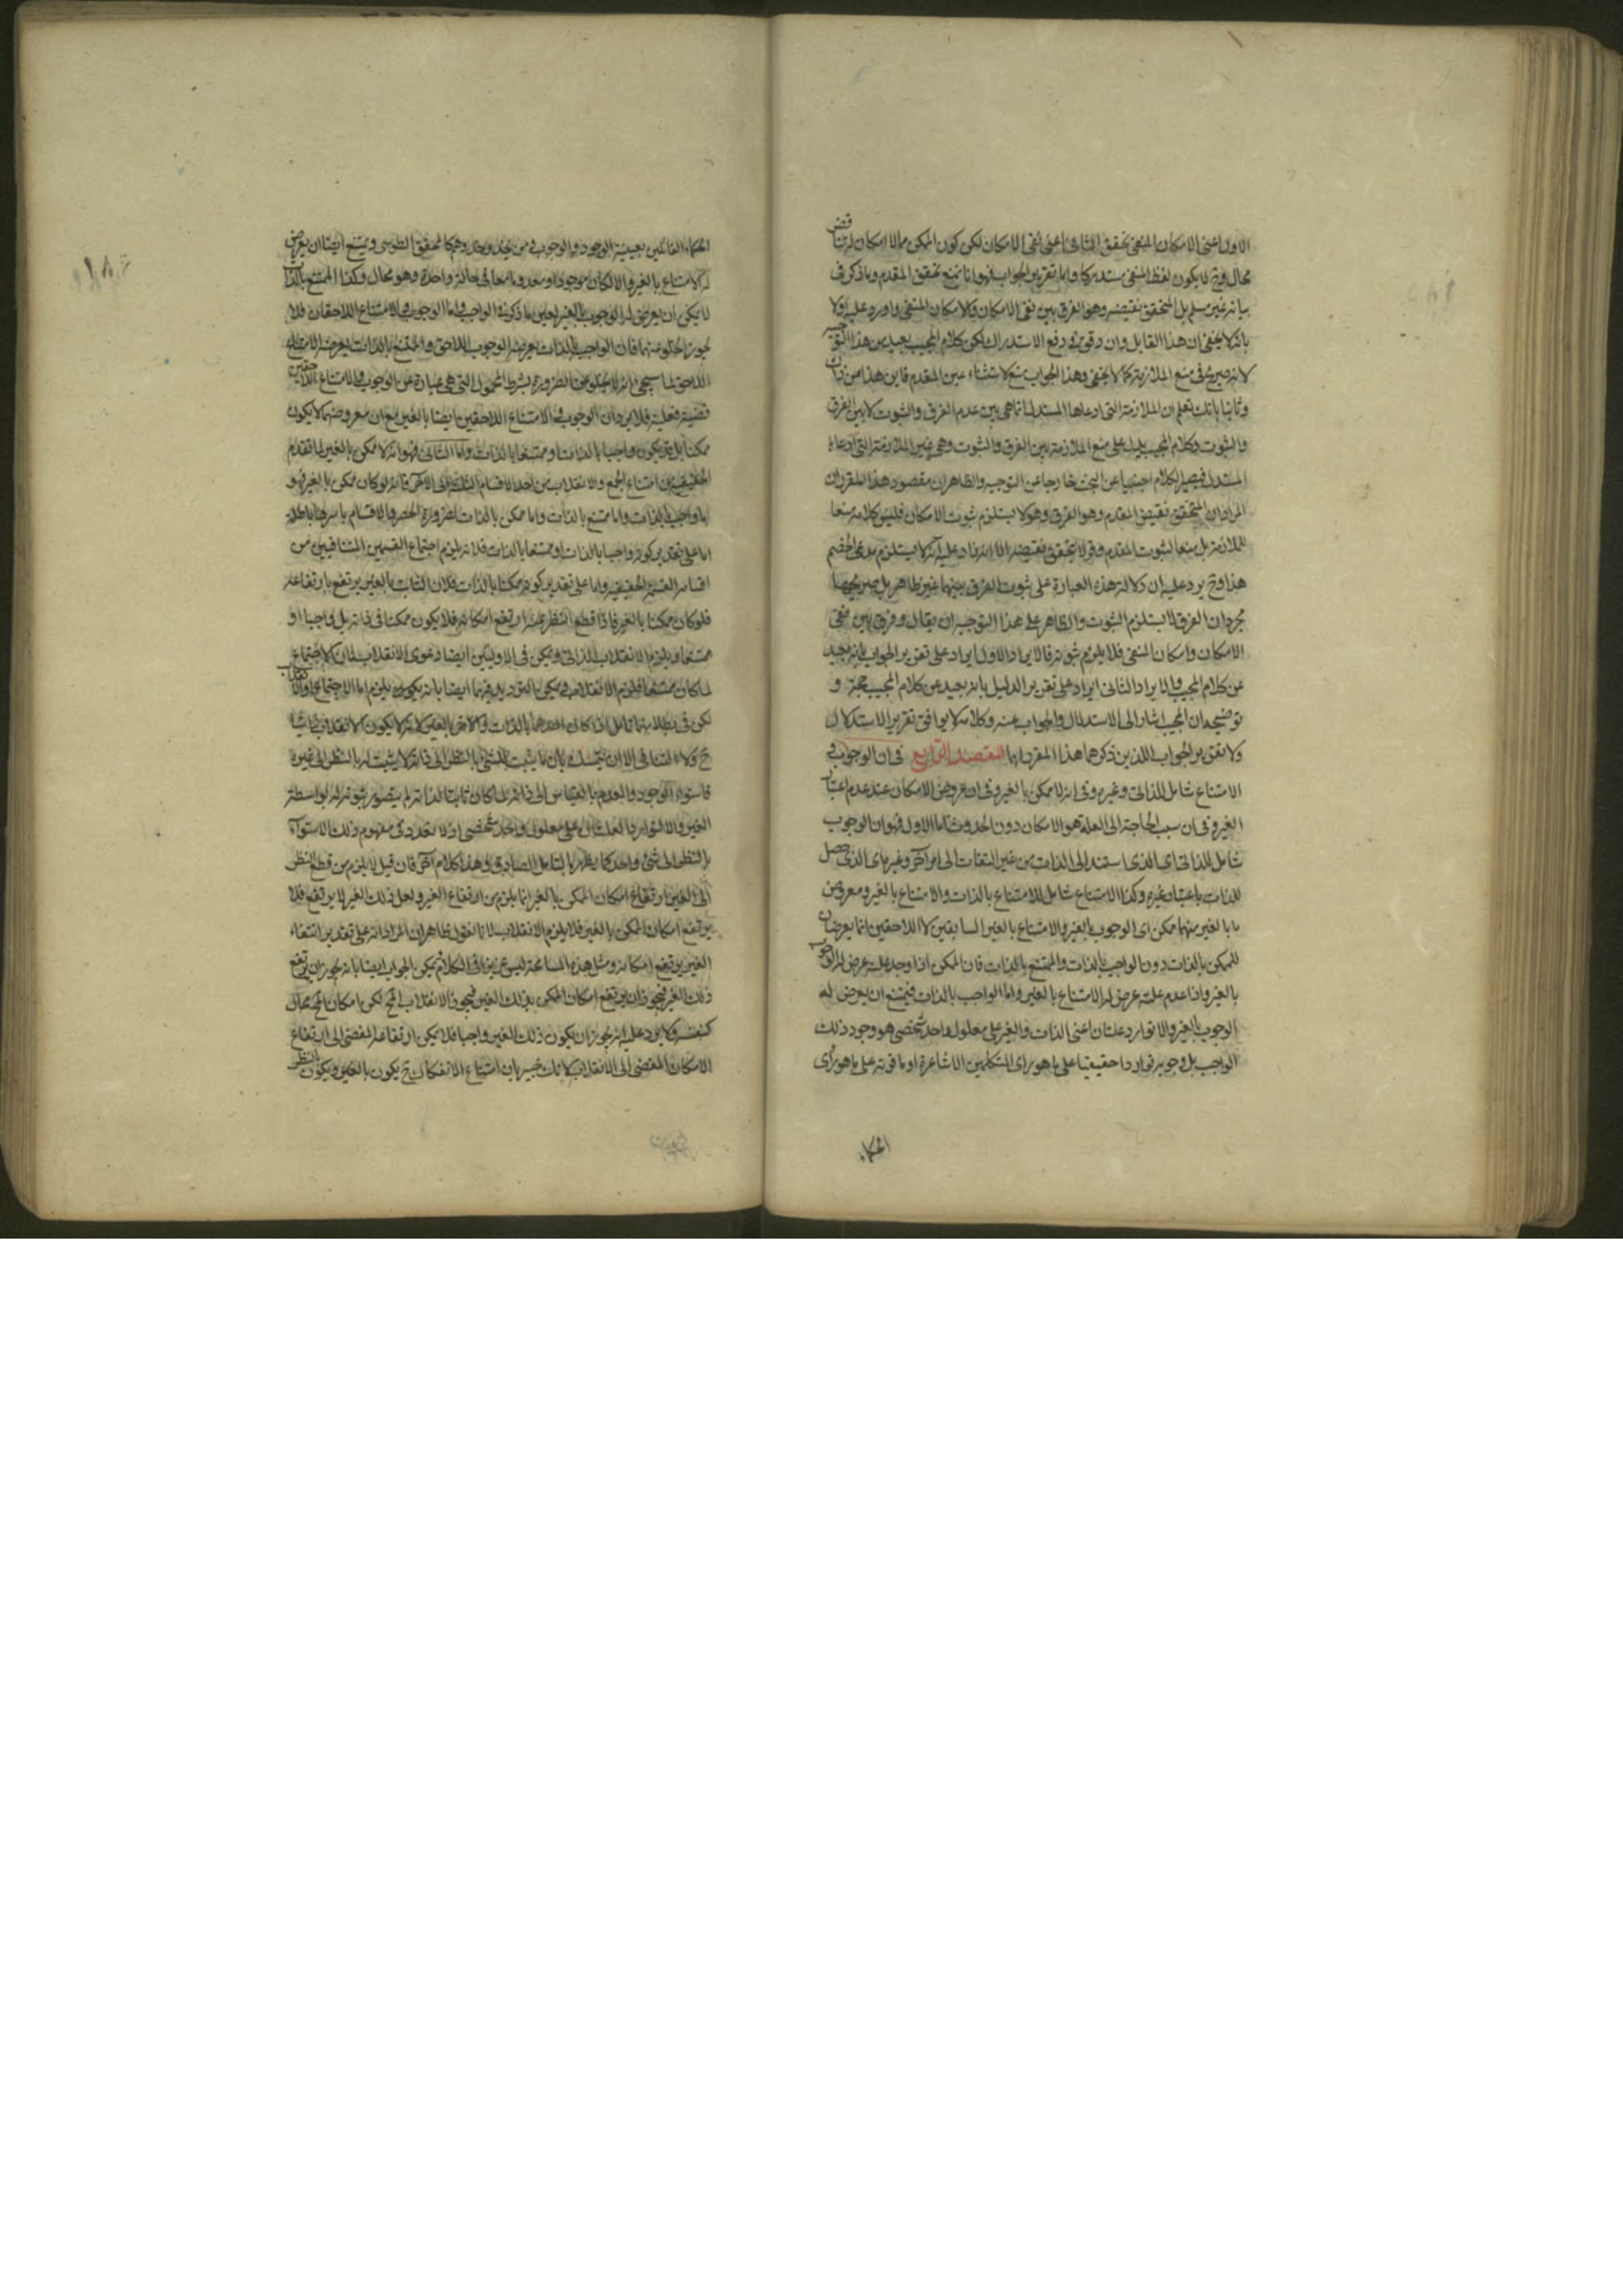 الاول اعنى الامكان المنفى تحقق الثانى اعنى نفى الامكان لكن كون الممكن مما لا امكان له تناقض
محال وح لا يكون لفظ المنفى مستدركا واما تقرير الجواب فهو انا نمنع تحقق المقدم وما ذكر فى
بيانه غير مسلم بل المتحقق نقيضه وهو الفرق بين نفى الامكان والامكان المنفى واورد عليه اولا
بانه لا يخفى ان هذا القايل وان دقق فى دفع الاستدراك لكن كلام المجيب بعيد من هذا التوجيه
لانه صريح فى منع الملازمة كما لا يخفى وهذا الجواب منع لاستثناء عين المقدم فاين هذا من ذاك
وثانيا بانك تعلم ان الملازمة التى ادعاها المستدل انما هى بين عدم الفرق والثبوت لا بين الفرق
والثبوت وكلام المجيب يدل على منع الملازمة بين الفرق والثبوت وهى غير الملازمة التى ادعاها
المستدل فيصير الكلام اجنبيا عن البحث خارجا عن التوجيه والظاهر ان مقصود هذا المقرر ان
المراد ان المتحقق نقيض المقدم وهو الفرق وهو لا يستلزم ثبوت الامكان فليس كلامه منعا
للملازمة بل منعا لثبوت المقدم وقولا بتحقق نقيضه الا انه زاد عليه انه لا يستلزم مدعى الخصم
هذا وح يرد عليه ان دلالة هذه العبارة على ثبوت الفرق بينهما غير ظاهر بل صريحها
مجرد ان الفرق لا يستلزم الثبوت والظاهر على هذا التوجيه ان يقال وفرق بين نفى
الامكان وامكان المنفى فلا يلزم ثبوته فالايراد الاول ايراد على تقرير الجواب بانه بعيد
عن كلام المجيب والايراد الثانى ايراد على تقرير الدليل بانه بعيد عن كلام المجيب و
توضيحه ان المجيب اشار الى الاستدلال والجواب عنه وكلامه لا يوافق تقرير الاستدلال
ولا تقرير الجواب اللذين ذكرهما هذا المقرر لهما المقصد الرابع فى ان الوجوب و
الامتناع شامل للذاتى وغيره وفى انه لا ممكن بالغير وفى ان عروض الامكان عند عدم اعتبار
الغير وفى ان سبب الحاجة الى العلة هو الامكان دون الحدوث اما الاول فهو ان الوجوب
شامل للذاتى اى الذى استند الى الذات من غير التفات الى امر آخر وغيره اى الذى حصل
للذات باعتبار غيره وكذا الامتناع شامل للامتناع بالذات والامتناع بالغير ومعروض
ما بالغير منهما ممكن اى الوجوب بالغير والامتناع بالغير السابقين لا اللاحقين انما يعرضان
للممكن بالذات دون الواجب بالذات والممتنع بالذات فان الممكن اذا وجد علته عرض له الوجوب
بالغير واذا عدم علته عرض له الامتناع بالغير واما الواجب بالذات فيمتنع ان يعرض له
الوجوب بالغير والا توارد علتان اعنى الذات والغير على معلول واحد شخصى هو وجود ذلك
الواجب بل وجوبه توارد احقيقيا على ما هو راى المتكلمين الاشاعرة او ما قوته على ما هو راى
الحكماء
١٨٤
الحكماء القائلين بعينية الوجود والوجوب ومن يحذو حذوهم كالمحقق الطوسى ويمتنع ايضا ان يعرض
له الامتناع بالغير والا لكان موجودا ومعدوما معا فى حالة واحدة وهو محال وكذا الممتنع بالذات
لا يمكن ان يعرض له الوجوب بالغير لعين ما ذكر فى الواجب واما الوجوب والامتناع اللاحقان فلا
يجوز الخلو منهما فان الواجب بالذات يعرضه الوجوب اللاحق والممتنع بالذات يعرضه الامتناع
اللاحق لما سيجئ انه لا يخلو عن الضرورة بشرط المحمول التى هى عبارة عن الوجوب والامتناع اللاحقين
قضية فعلية فلا يرد ان الوجوب والامتناع اللاحقين ايضا بالغير مع ان معروضهما لا يكون
ممكنا بل قد يكون واجبا بالذات او ممتنعا بالذات واما الثانى فهو انه لا ممكن بالغير لما تقدم
من امتناع الجمع والانقلاب من احد الاقسام الثلثة الى الآخر فانه لو كان ممكن بالغير فهو
اما واجب بالذات واما ممتنع بالذات واما ممكن بالذات لضرورة الحصر والاقسام باسرها باطلة
اما على تقدير كونه واجبا بالذات او ممتنعا بالذات فلانه يلزم اجتماع القسمين المتنافيين من
اقسام القسمة الحقيقية واما على تقدير كونه ممكنا بالذات فلان الثابت بالغير يرتفع بارتفاعه
فلو كان ممكنا بالغير فاذا قطع النظر عنه ارتفع امكانه فلا يكون ممكنا فى ذاته بل واجبا او
ممتنعا ويلزم الانقلاب الذاتى ويمكن فى الاولين ايضا دعوى الانقلاب لان الاجتماع
لما كان ممتنعا فيلزم الانقلاب ويمكن الترديد فيهما ايضا بانه يلزم اما الاجتماع او الانقلاب
لكن فى بطلانهما تامل اذا كان احدهما بالذات والآخر بالغير لانه لا يكون الانقلاب ذاتيا
ح ولا التنافى الا ان يتمسك بان ما يثبت للشئ بالنظر الى ذاته لا يثبت له بالنظر الى غيره
فاستواء الوجود والعدم بالقياس الى ذاته لما كان ثابتا لذاته لم يتصور ثبوته له بواسطة
الغير والا لتوارد العلتان على معلول واحد شخصى اذ لا تعدد فى مفهوم ذلك الاستواء
بالنظر الى شئ واحد كما يظهر بالتامل الصادق وهذا كلام آخر فان قيل لا يلزم من قطع النظر
الى الغير ارتفاع امكان الممكن بالغير انما يلزم من ارتفاع الغير ولعل ذلك الغير لا يرتفع فلا
يرتفع امكان الممكن بالغير فلا يلزم الانقلاب لانا نقول ظاهر ان المراد انه على تقدير انتفاء
الغير يرتفع امكانه ومثل هذه المسامحة ليس عزيزا فى الكلام ويمكن الجواب ايضا بانه يجوز ان يرتفع
ذلك الغير فيجوز ان يرتفع امكان الممكن بذلك الغير فيجوز الانقلاب المح لكن امكان المح محال
كنفسه ولا يرد عليه انه يجوز ان يكون ذلك الغير واجبا فلا يمكن ارتفاعه المفضى الى ارتفاع
الامكان المفضى الى الانقلاب لانك خبير بان امتناع الانفكاك ح يكون بالغير ويكون بالنظر